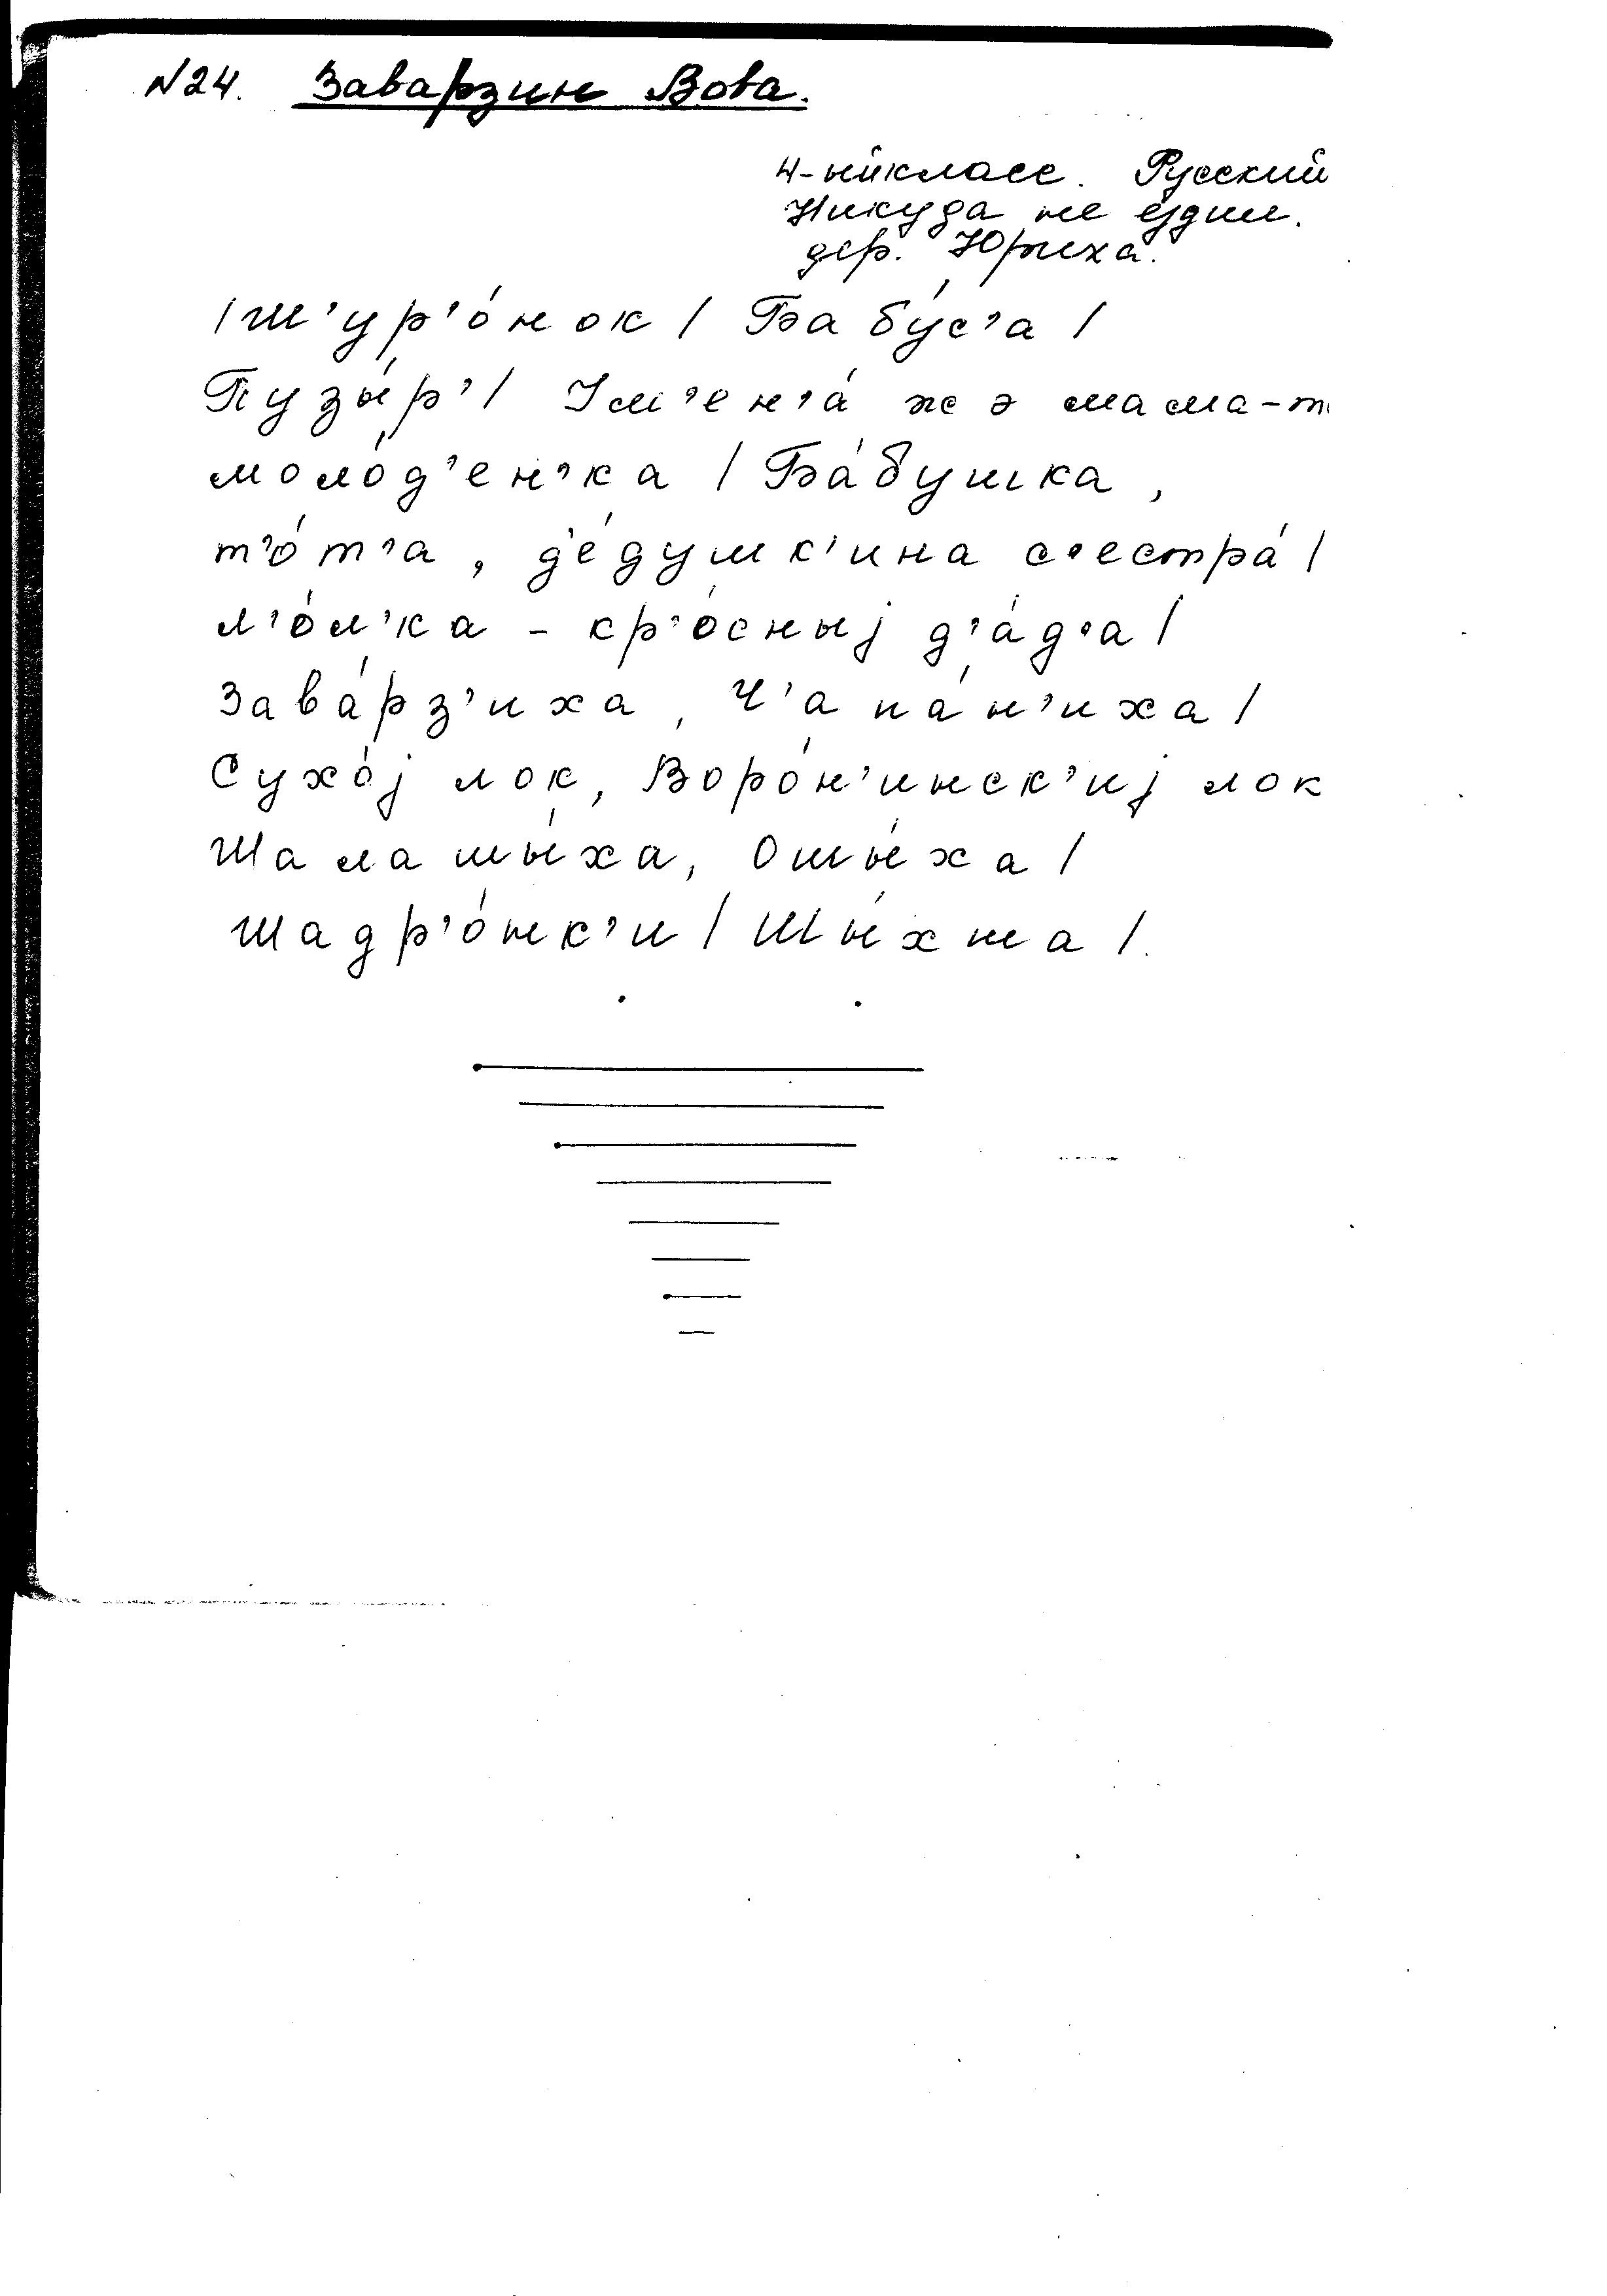 N24. Заварзин Вова.
4-ый класс. Русский
Никуда не ездил.
дер. Юриха.
/ Ш'ур'о́нок / Бабу́с'а /
Пузы́р' / Ум'ен'а́ жэ мама-т
моло́д'ен'ка / Ба́бушка,
т'о́т'а, д'е́душк'ина с'естра́ /
л'о́л'ка - кр'о́сныј д'а́д'а /
Зава́рз'иха, Ч'апа́н'иха /
Сухо́ј лок, Воро́н'инск'иј лок
Шаламы́ха, Ошы́ха /
шадр'о́нк'и / Шы́хма /.